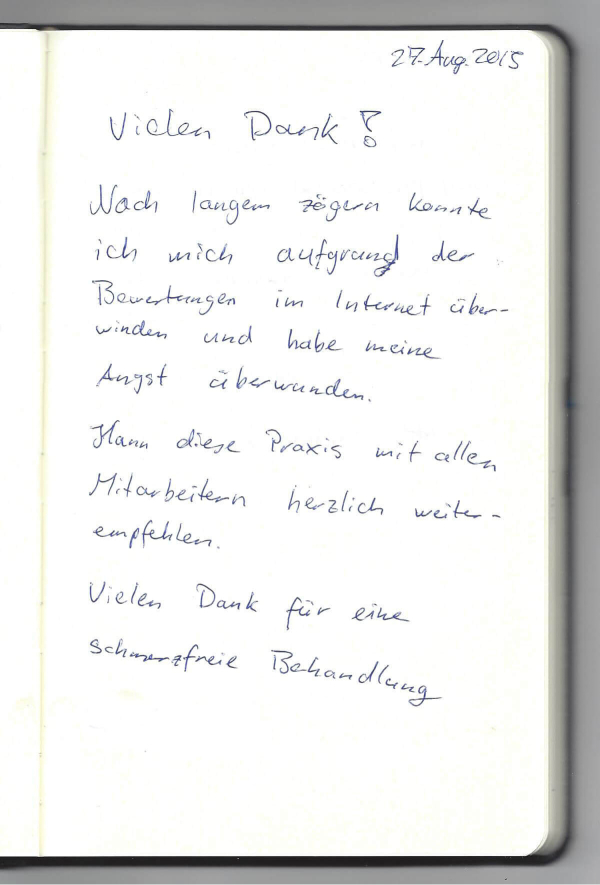 27. Aug. 2015
Vielen Dank!
Nach langem zögern konnte
ich mich aufgrund der
Bewertungen im Internet über-
winden und habe meine
Angst überwunden.
Kann diese Praxis mit allen
Mitarbeitern herzlich weiter-
empfehlen.
Vielen Dank für eine
schmerzfreie Behandlung